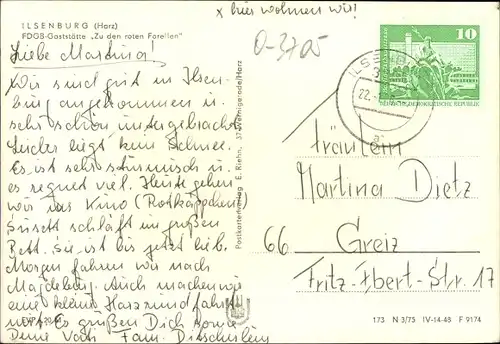 x hier wohnen wir!
ILSENBURG (Harz)
FDGB-Gaststätte „Zu den roten Forellen"
0-3705
Liebe Martina!
Wir sind gut in Ilsen-
burg angekommen u.
sehr schön untergebracht
Leider liegt kein Schnee.
Es ist sehr stürmisch u.
es regnet viel. Heute gehen
wir ins Kino (Rotkäppchen)
schläft im großen
Bett. Sie ist bis jetzt lieb.
Morgen fahren wir nach
Magdeburg. Auch machen wir
eine kleine Harzrundfahrt
mit. Es grüßen Dich sowie
Deine Vati Fam.
Postkartenverlag E. Riehn, 37 Wernigerode/Harz
ILSENBURG
22.
10
DEUTSCHE DEMOKRATISCHE REPUBLIK
Fräulein
Martina Dietz
66 Greiz
Fritz-Ebert-Str. 17
173 N 3/75 IV-14-48 F 9174